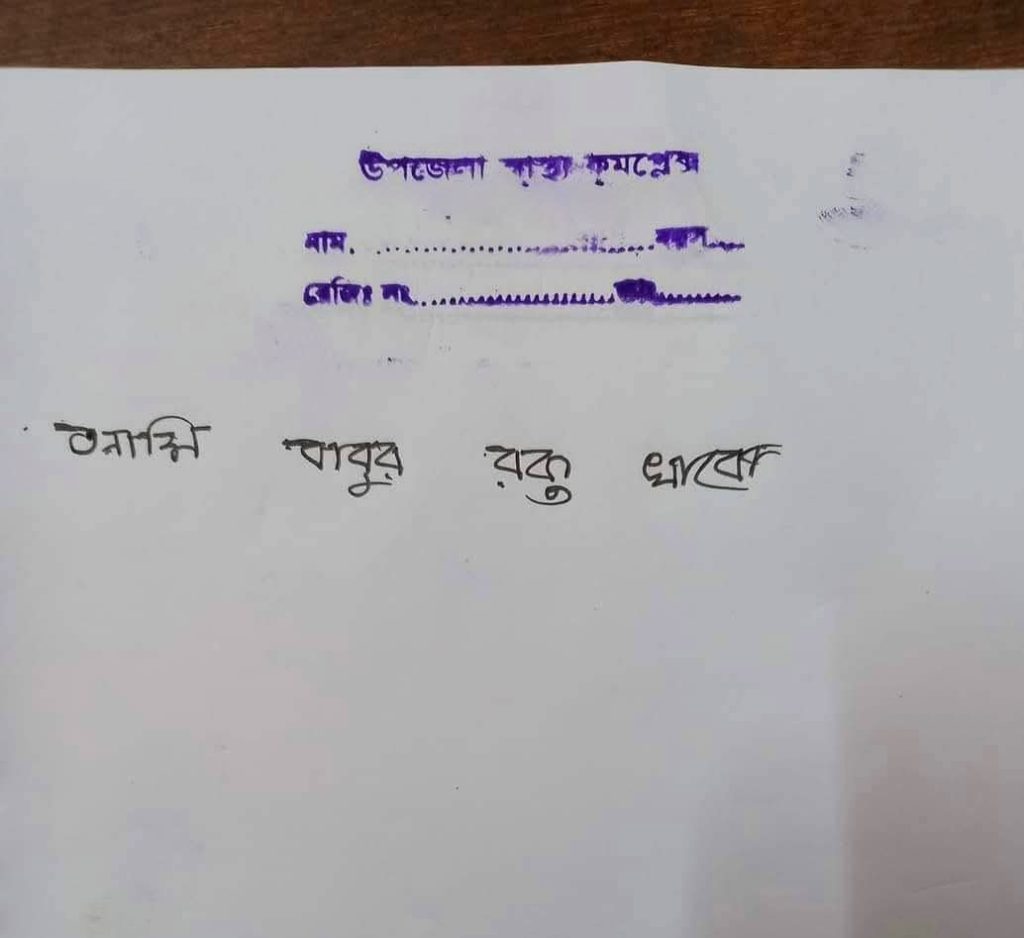 উপজেলা স্বাস্থ্য কমপ্লেক্স
নাম. .......................................... বয়স.......
রেজিঃ নং..........................................
বাবুর রক্ত খাবো